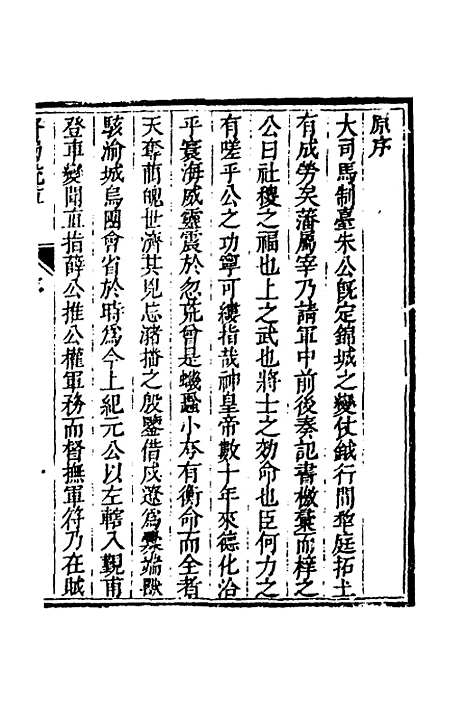 原序
大司馬制臺朱公旣定錦城之變仗鉞行間犂庭拓土
有成勞矣藩屬宰乃請軍中前後奏記書檄彙而梓之
公曰社稷之福也上之武也將士之効命也臣何力之
有嗟乎公之功寧可縷指哉神皇帝數十年來德化洽
平寰海威靈震於忽荒曾是蟣蝨小夷有衡命而全者
天奪萌魄世濟其兇忘潴播之殷鑒借戍遼爲釁端歘
駭渝城烏團會省於時爲今上紀元公以左轄入覲甫
登車變聞直指薛公推公權軍務而督撫軍符乃在賊
序